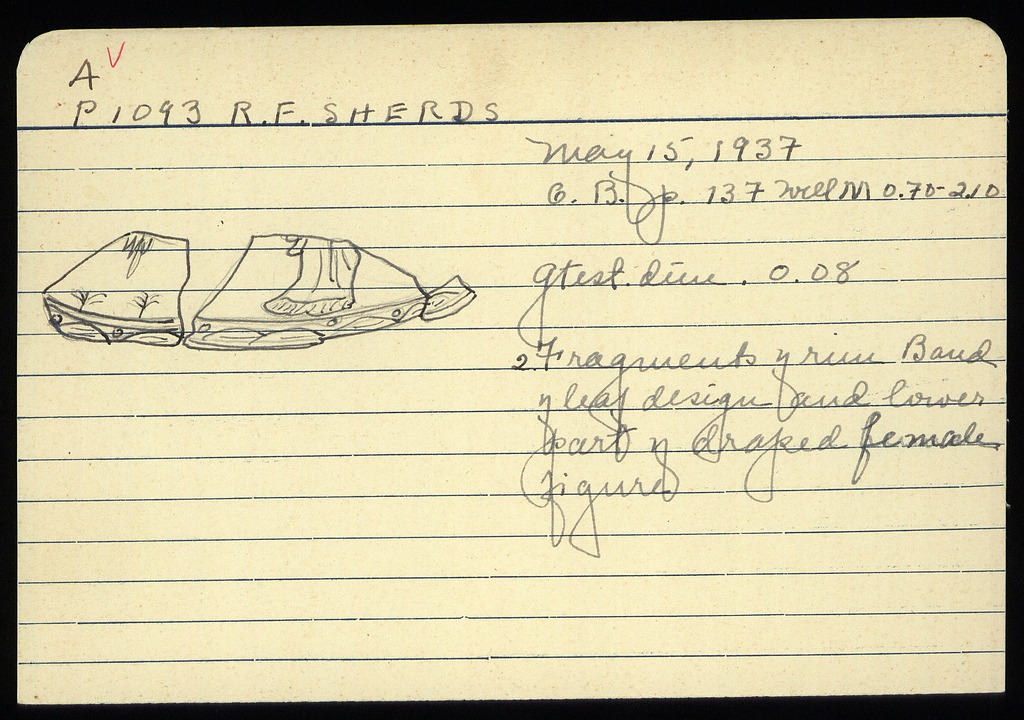 A
P 1093 R.F. SHERDS
May 15, 1937
C. B. p. 137 Well M 0.70-2.10
gtest. dim. 0.08
2 Fragments of rim Band
of leaf design and lower
part of draped female
figure